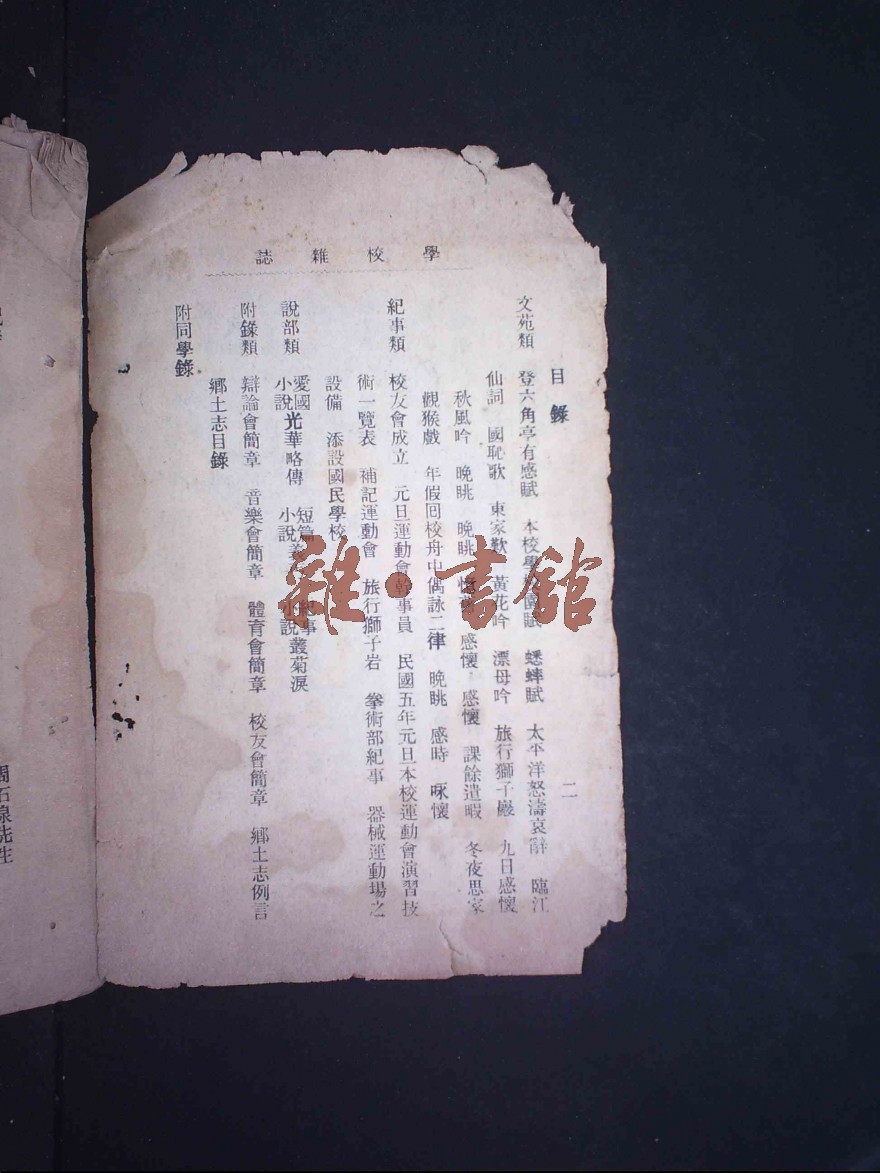 學校雜誌
目錄
二
文苑類 登六角亭有感賦 本校學 園賦 蟋蟀賦 太平洋怒濤哀辭 臨江
仙詞 國恥歌 東家歎 黃花吟 漂母吟 旅行獅子巖 九日感懷
秋風吟 晚眺 晚眺 感懷 感懷 課餘遣暇 冬夜思家
觀猴戲 年假回校舟中偶詠二律 晚眺 感時 咏懷
紀事類 校友會成立 元旦運動會幹事員 民國五年元旦本校運動會演習技
術一覽表 補記運動會 旅行獅子岩 拳術部紀事 器械運動場之
設備 添設國民學校
說部類 愛國小說光華略傳 短篇小說義 紀事小說叢菊淚
附錄類 辯論會簡章 音樂會簡章 體育會簡章 校友會簡章 鄉土志例言
鄉土志目錄
附同學錄
周石泉先生
雜·書館